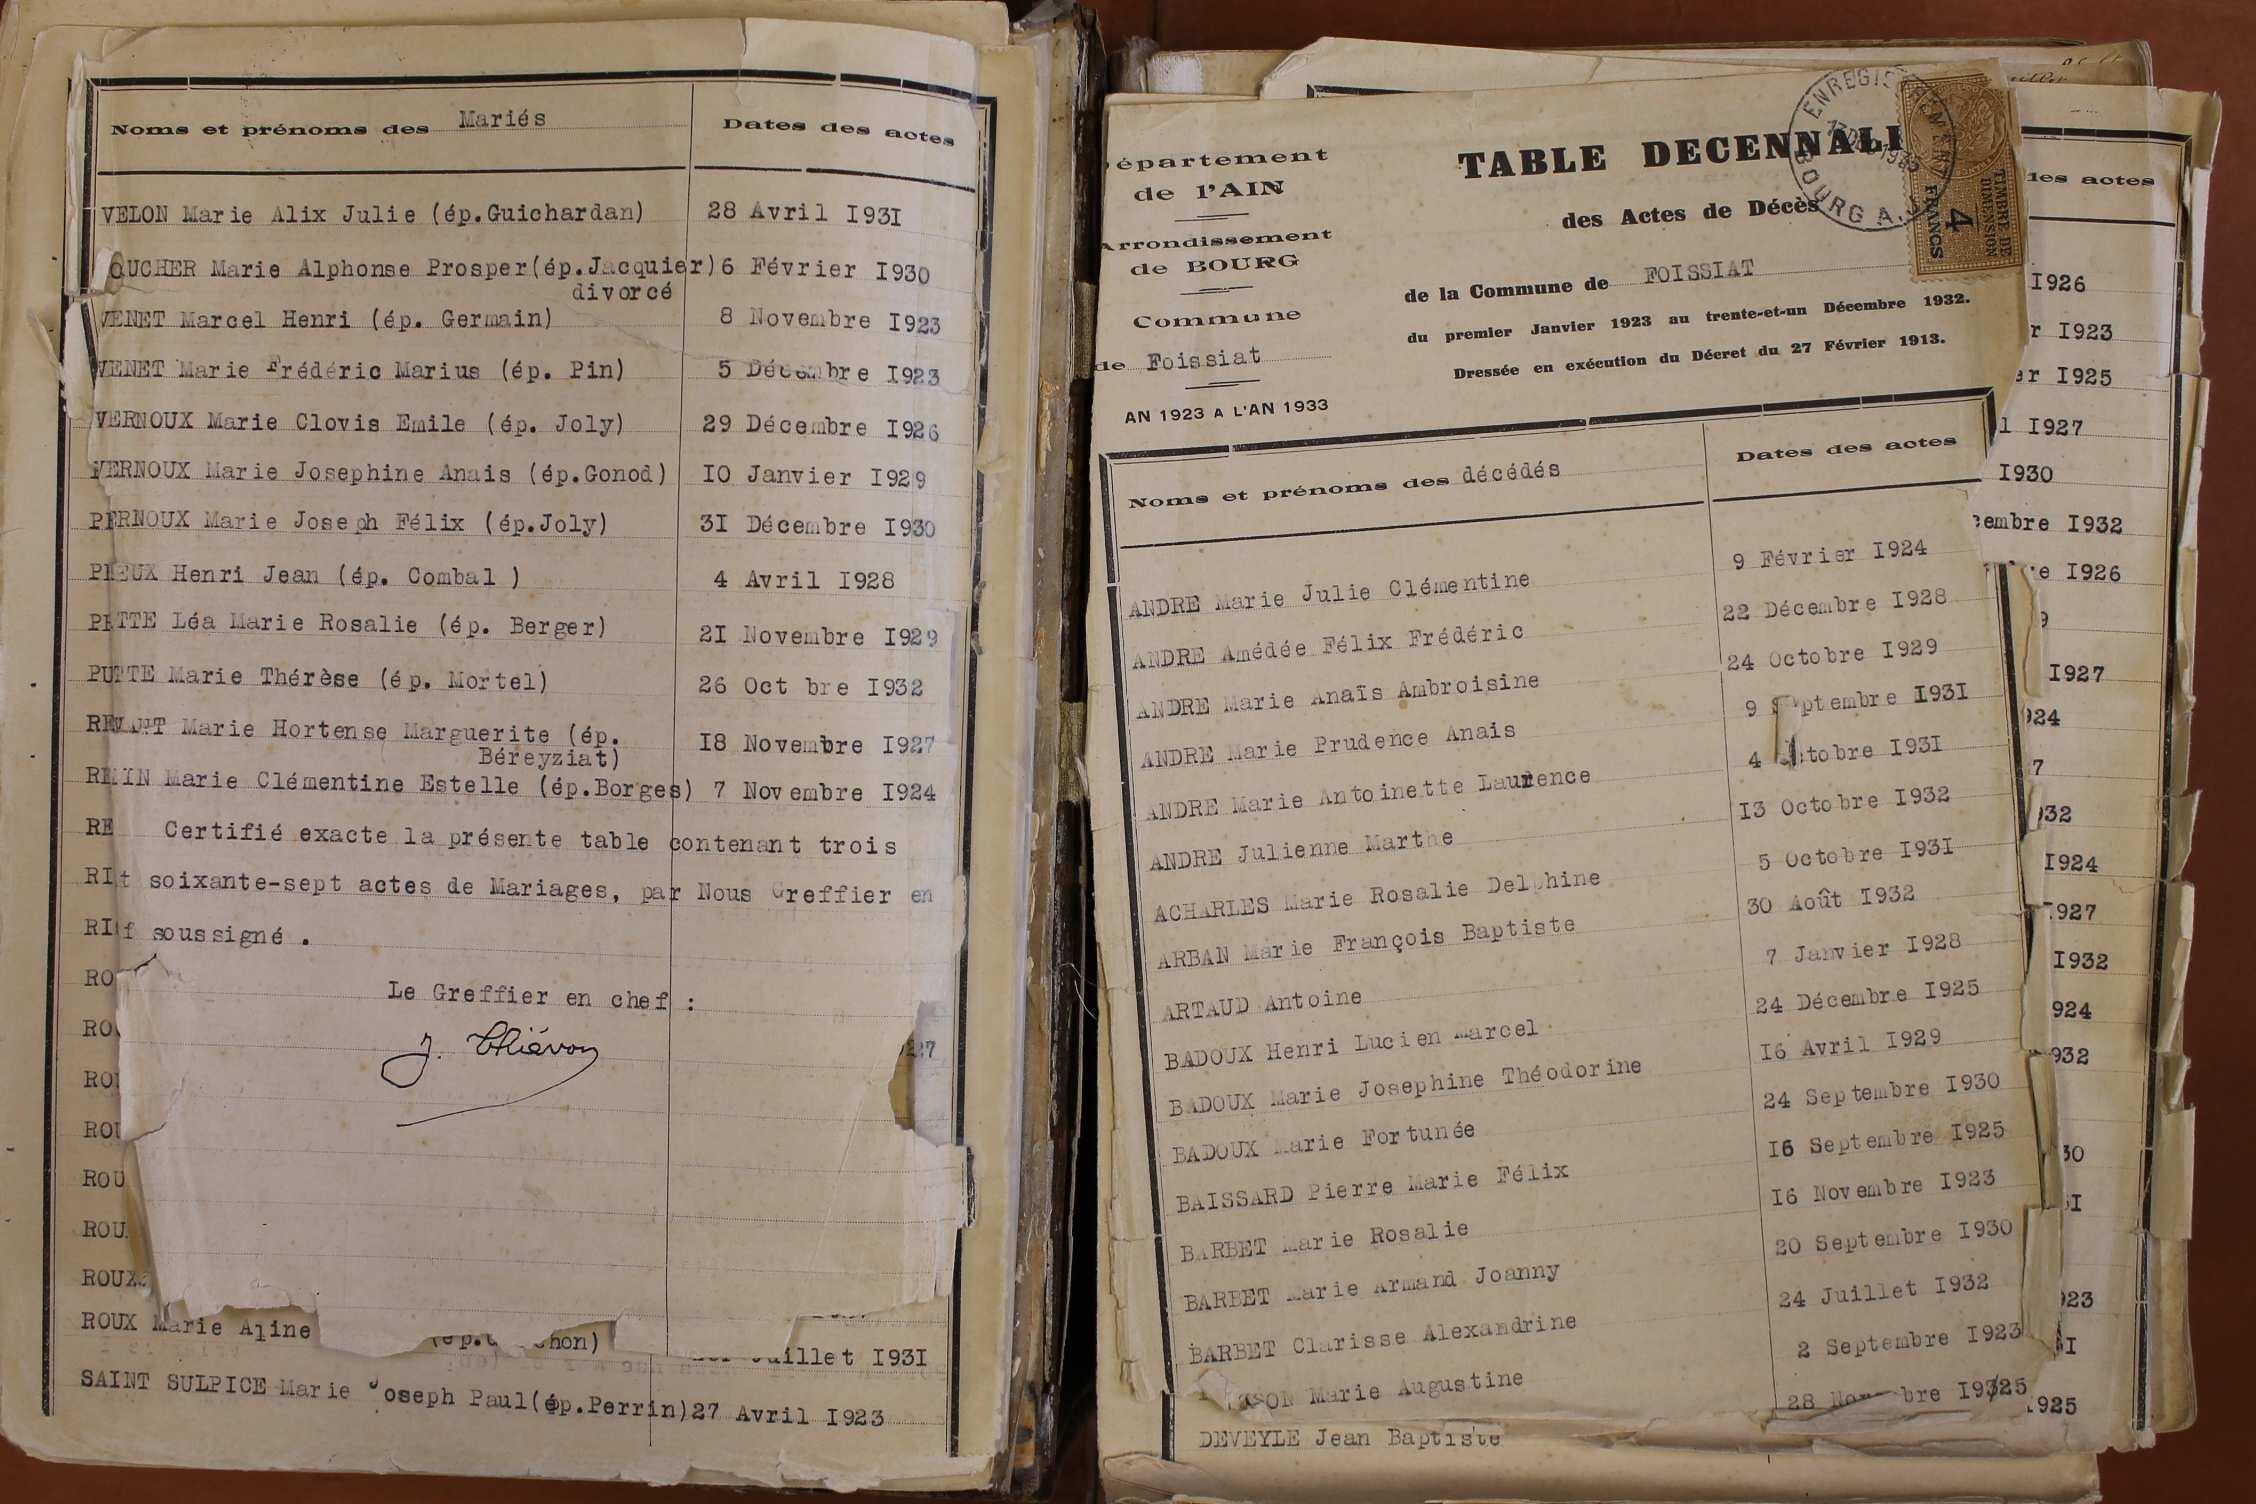 Noms et prénoms des Mariés Dates des actes
VELON Marie Alix Julie (ép.Guichardan) 28 Avril I93I
OUCHER Marie Alphonse Prosper(ép.Jacquier) 6 Février I930
divorcé
VENET Marcel Henri (ép. Germain) 8 Novembre I923
VENET Marie Frédéric Marius (ép. Pin) 5 Décembre I923
VERNOUX Marie Clovis Emile (ép. Joly) 29 Décembre I926
VERNOUX Marie Josephine Anais (ép.Gonod) IO Janvier I929
PERNOUX Marie Joseph Félix (ép.Joly) 3I Décembre I930
Henri Jean (ép. Combal ) 4 Avril I928
Léa Marie Rosalie (ép. Berger) 2I Novembre I929
Marie Thérèse (ép. Mortel) 26 Oct bre I932
Marie Hortense Marguerite (ép. I8 Novembre I927
Béreyziat)
Marie Clémentine Estelle (ép.Borges) 7 Novembre I924
RE Certifié exacte la présente table contenant trois
RI t soixante-sept actes de Mariages, par Nous Greffier en
RI f soussigné .
RO
Le Greffier en chef :
RO
J. Thiévon 27
RO
ROU
ROU
ROU
ROUX
ROUX Marie Aline (ép. hon) Juillet I93I
SAINT SULPICE Marie Joseph Paul(ép.Perrin) 27 Avril I923
épartement
de l'AIN
Arrondissement
de BOURG
Commune
de Foissiat
AN 1923 A L'AN 1933
TABLE DECENNALE
des Actes de Décès
de la Commune de FOISSIAT
du premier Janvier 1923 au trente-et-un Décembre 1932.
Dressée en exécution du Décret du 27 Février 1913.
ENREGIS EMENT
BOURG A.
TIMBRE DE
DIMENSION
4
FRANCS
Noms et prénoms des décédés Dates des actes
ANDRE Marie Julie Clémentine 9 Février I924
ANDRE Amédée Félix Frédéric 22 Décembre I928
ANDRE Marie Anaïs Ambroisine 24 Octobre I929
ANDRE Marie Prudence Anais 9 S ptembre I93I
ANDRE Marie Antoinette Laurence 4 ctobre I93I
ANDRE Julienne Marthe I3 Octobre I932
ACHARLES Marie Rosalie Delphine 5 Octobre I93I
ARBAN Marie François Baptiste 30 Août I932
ARTAUD Antoine 7 Janvier I928
BADOUX Henri Lucien Marcel 24 Décembre I925
BADOUX Marie Josephine Théodorine I6 Avril I929
BADOUX Marie Fortunée 24 Septembre I930
BAISSARD Pierre Marie Félix I6 Septembre I925
BARBET Marie Rosalie I6 Novembre I923
BARBET Marie Armand Joanny 20 Septembre I930
BARBET Clarisse Alexandrine 24 Juillet I932
SON Marie Augustine 2 Septembre I923
DEVEYLE Jean Baptiste 28 Novembre I925
des actes
I926
r I923
er I925
l I927
I930
cembre I932
re I926
9
I927
924
7
932
I924
I927
I932
924
932
30
3I
923
3I
I925